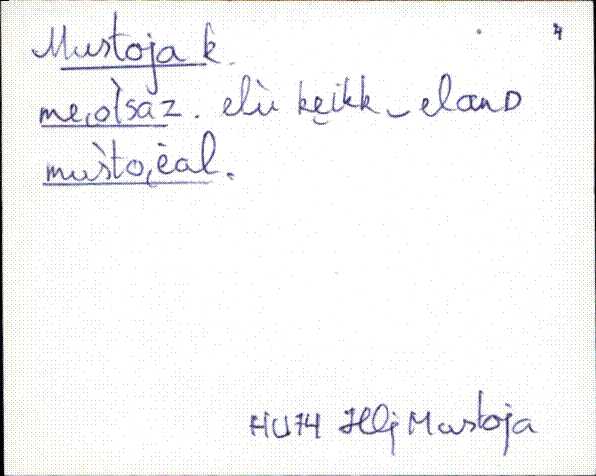 Mustoja k.
me̮i̮si̮saz. elìi kęikk ‿ elanD
mušto.čal.
HU74 Hlj Mustoja